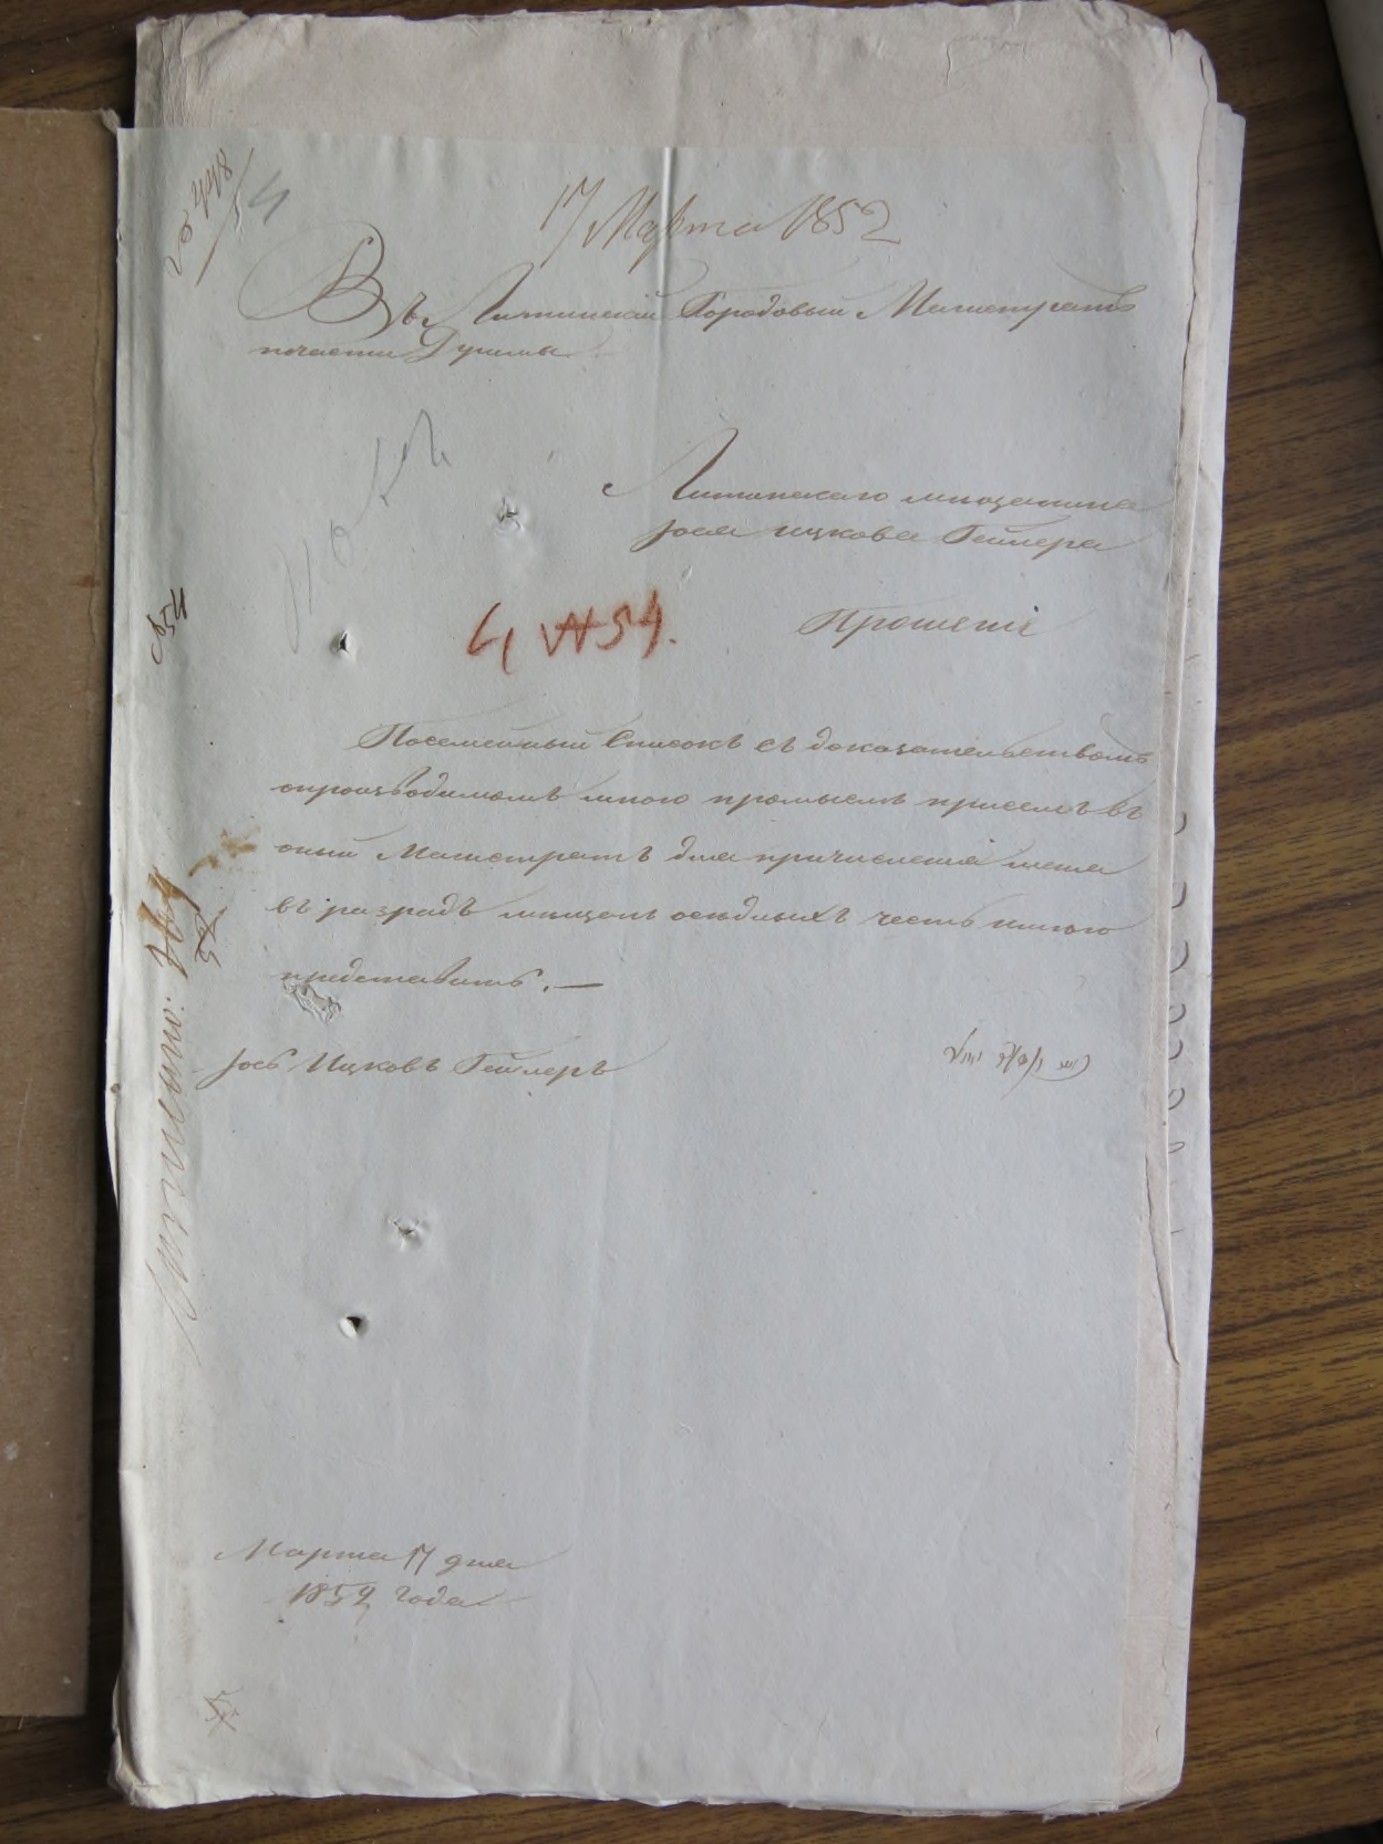 448
17 Марта 1852
Въ Литинскій Городовый Магистратъ
по части Думы.
Литинскаго мещанина
Іося Ицкова Гейлера
4 №54.
Прошеніе
Посемейный Списокъ съ доказательствомъ
опроизводимомъ мною промыслѣ приемлъ въ
оный Магистратъ для причисленія меня
въ разрядъ мещанъ осѣдлыхъ честь имѣю
представить. —
Іось Ицковъ Гейлеръ
Марта 17 дня
1852 года